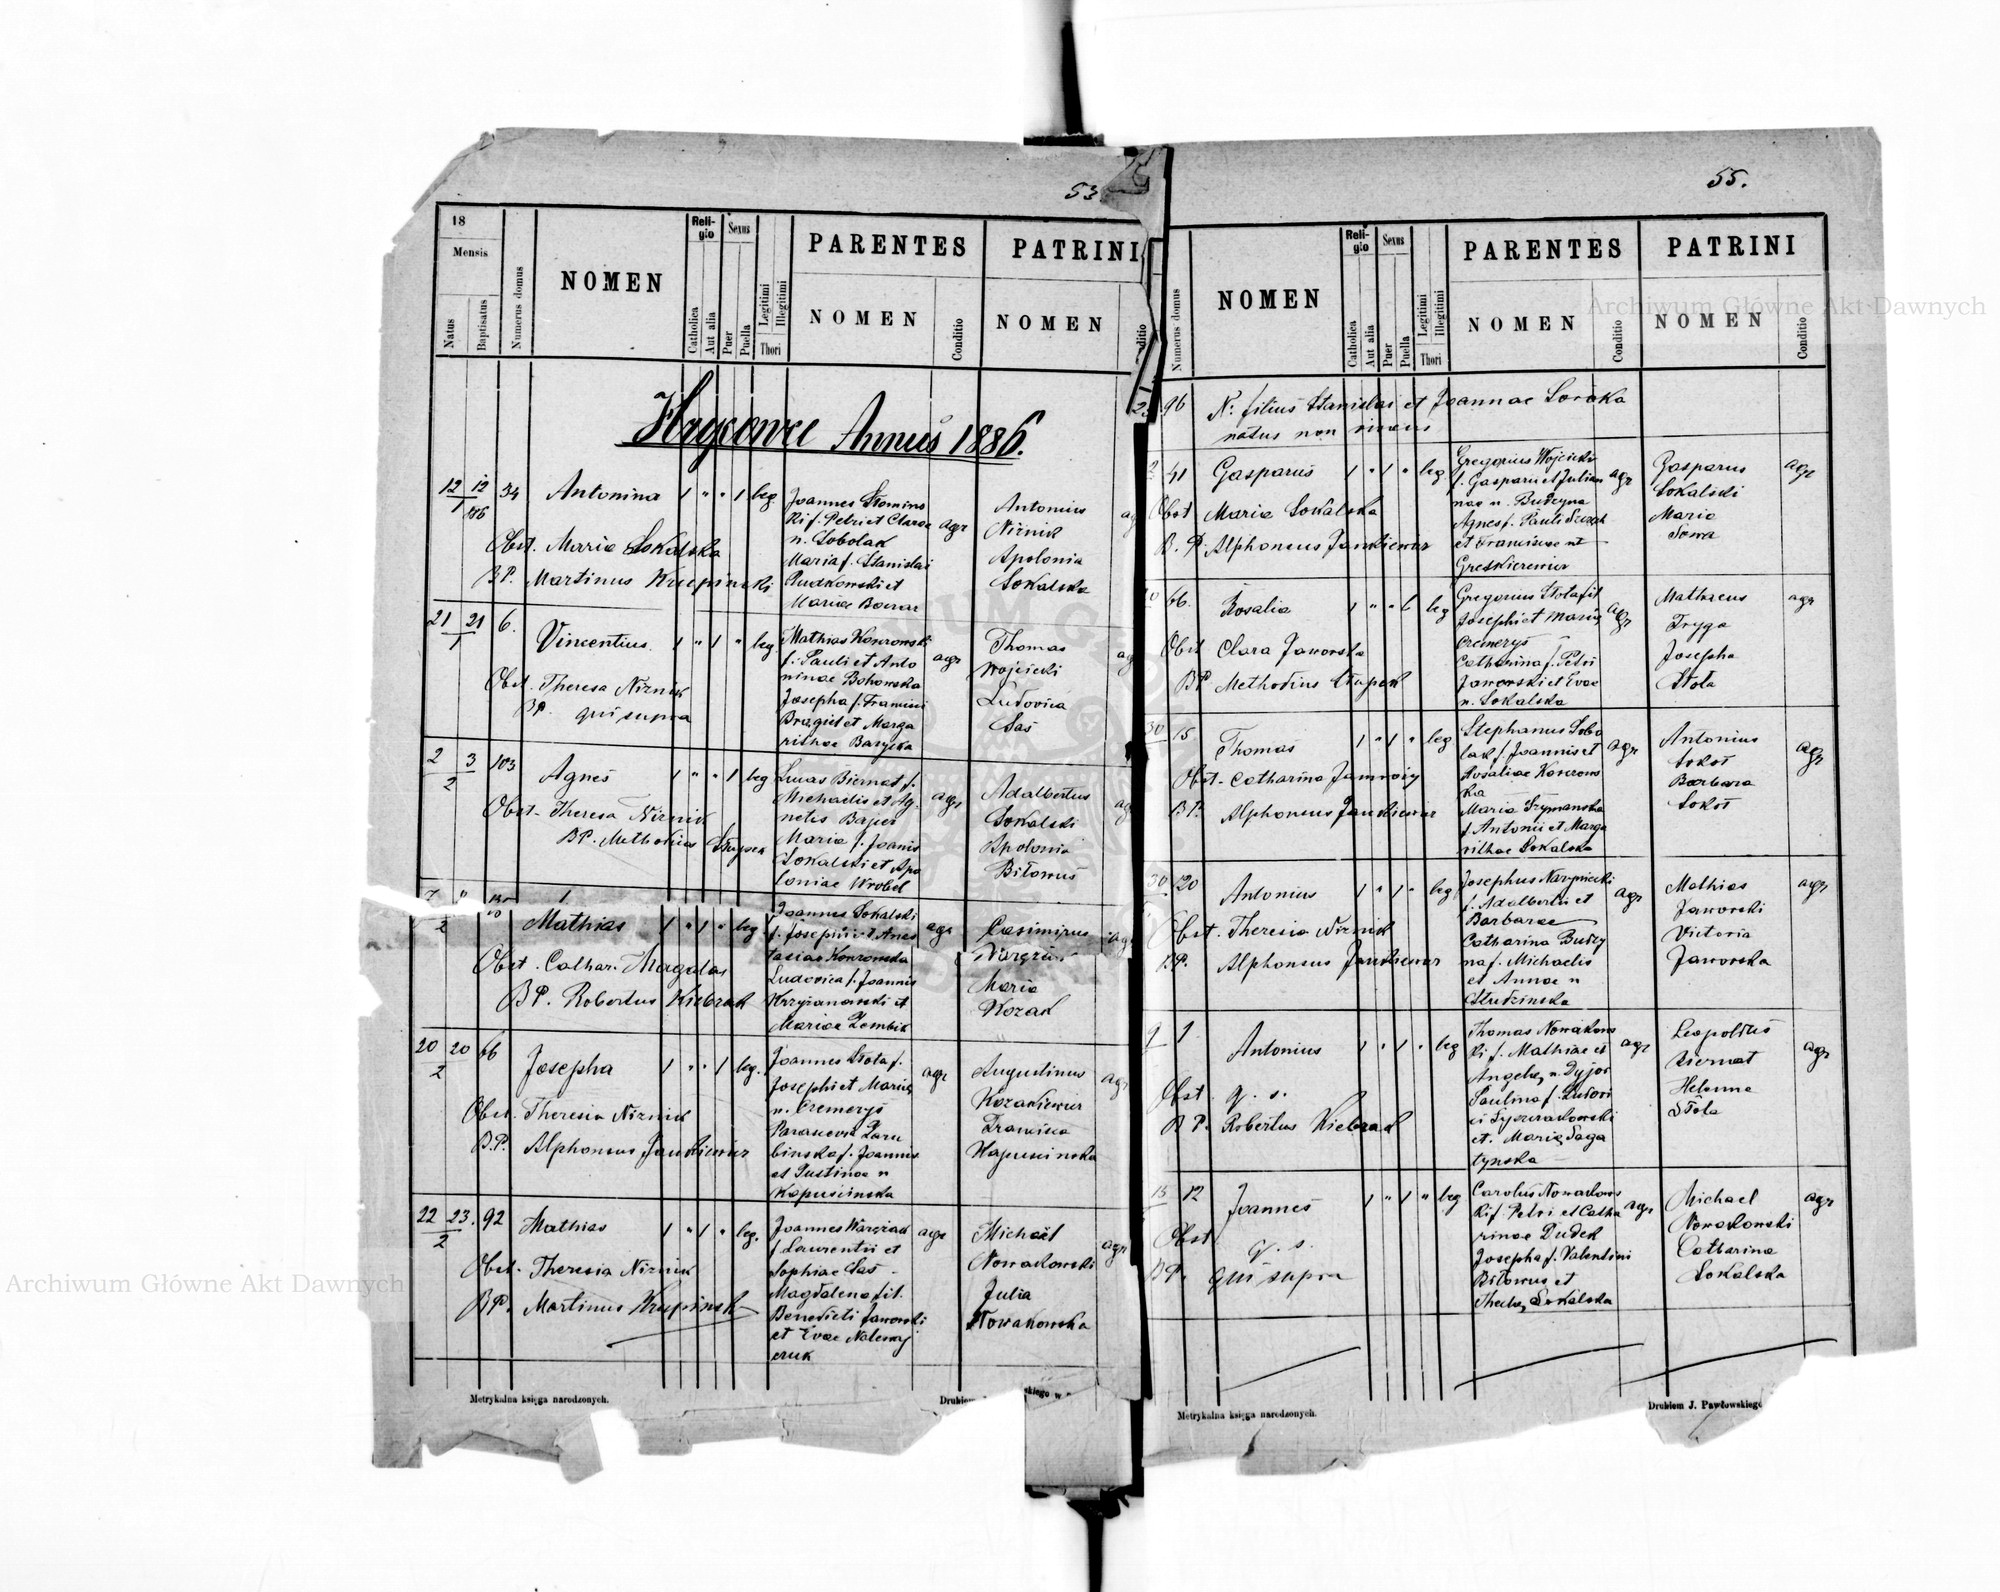 53
18
Mensis
Natus
Baptisatus
Numerus domus
NOMEN
Reli-
gio
Catholica
Aut alia
Sexus
Puer
Puella
Legitimi
Illegitimi
Thori
PARENTES
NOMEN
Conditio
PATRINI
NOMEN
Annus 1886.
12 12 34 Antonina 1 " " 1 leg.
1 86
Obst. Maria Sokalska
BP. Martinus Krupinski
Ki f. Petri et Clarae
n. Sobolak
Maria f. Stanislai
Rudkowski et
agr
Antonius
Niznik
Apolonia
Sokalska
21 21 6. Vincentius. 1 " 1 " leg
1
Obst. Theresa Niznik
BP. qui supra
Mathias Konrowski
f. Pauli et Anto
ninae Bohowska
Josepha f. Francisci
et Marga
rithae
agr
Thomas
Wojcicki
Ludovica
Sas
2 3 103 Agnes 1 " " 1 leg
2
Obst. Theresa Niznik
BP. Methodius
Lucas Biernat f.
Michaelis et Ag-
netis
Maria f. Joanis
Sokalski et Apo
loniae Wrobel
agr
Adalbertus
Sokalski
Apolonia
Biłowus
7 "
2
Mathias 1 " 1 " leg
Obst. Cathar. Magdas
BP. Robertus Kiebzak
Joannes Sokalski
f. Josephi et Anas
tasiae Konrowska
Ludovica f. Joannis
Krzyżanowski et
Mariae Zembik
agr
Casimirus
Maria
Kozak
20 20 66 Josepha 1 " " 1 leg.
2
Obst. Theresia Niznik
B.P. Alphonsus Jankiewicz
Joannes Stota f.
Josephi et Mariae
n. Cremerys
binska f. Joannis
et Justinae n
Kapuscinska
agr
Augustinus
Kozakiewicz
Francisca
Kapuscinska
agr
22 23. 92 Mathias 1 " 1 " leg.
2
Obst. Theresia Niznik
BP. Martinus Krupinski
f. Laurentii et
Sophiae Sas
Magdalena fil.
Benedicti Jaworski
et Evae
agr
Michael
Nowakowski
Julia
Nowakowska
agr
Metrykalna księga narodzonych.
55.
Numerus domus
NOMEN
Reli-
gio
Catholica
Aut alia
Sexus
Puer
Puella
Legitimi
Illegitimi
Thori
PARENTES
NOMEN
Conditio
PATRINI
NOMEN
Conditio
96 N: filius Stanislai et Joannae Soroka
natus non vivens
41 Gasparus 1 " 1 " leg
Obst Maria Sokalska
B. P. Alphonsus Jankiewicz
Gregorius Wojcicki
f. Gaspari et Julian
nae n. Budzyna
Agnes f. Pauli
et Franciscae
agr
Gasparus
Sokalski
Maria
Sowa
agr
66. Rosalia 1 " " 1 leg
Obst Clara Jaworska
BP Methodius
Gregorius Stota fil
Josephi et Mariae
Cremerys
Catharina f. Petri
Jaworski et Evae
n. Sokalska
agr
Mathaeus
Fryga
Josepha
Stota
agr
30 15 Thomas 1 " 1 " leg
Obst. Catharina
BP. Alphonsus Jankiewicz
Stephanus Sobo
lak f. Joannis et
Rosaliae Konrows
ka
Maria Szymanska
f. Antonii et Marga
rithae Sokalska
agr
Antonius
Sokoł
Barbara
Sokoł
agr
30 120 Antonius 1 " 1 " leg
Obst. Theresia Niznik
B.P. Alphonsus Jankiewicz
f. Adalberti et
Barbarae
Catharina Budzy
na f. Michaelis
et Annae n
Studzinska
agr
Mathias
Jaworski
Victoria
Jaworska
agr
1 Antonius 1 " 1 " leg
Obst. q. s.
B P. Robertus Kiebzak
Thomas Nowakows
ki f. Mathiae et
Paulina f. Ludovi
et. Mariae Saga
tynska
agr
Leopoldus
Biernat
Helenna
Stota
agr
13 12 Joannes 1 " 1 " leg
Obst q. s.
BP. qui supra
Carolus Nowakows
ki f. Petri et Catha
rinae Dudek
Josepha f. Valentini
Biłowus et
Theclae Sokalska
agr
Michael
Nowakowski
Catharina
Sokalska
agr
Metrykalna księga narodzonych.
Drukiem J. Pawłowskiego
Archiwum Główne Akt Dawnych
Archiwum Główne Akt Dawnych